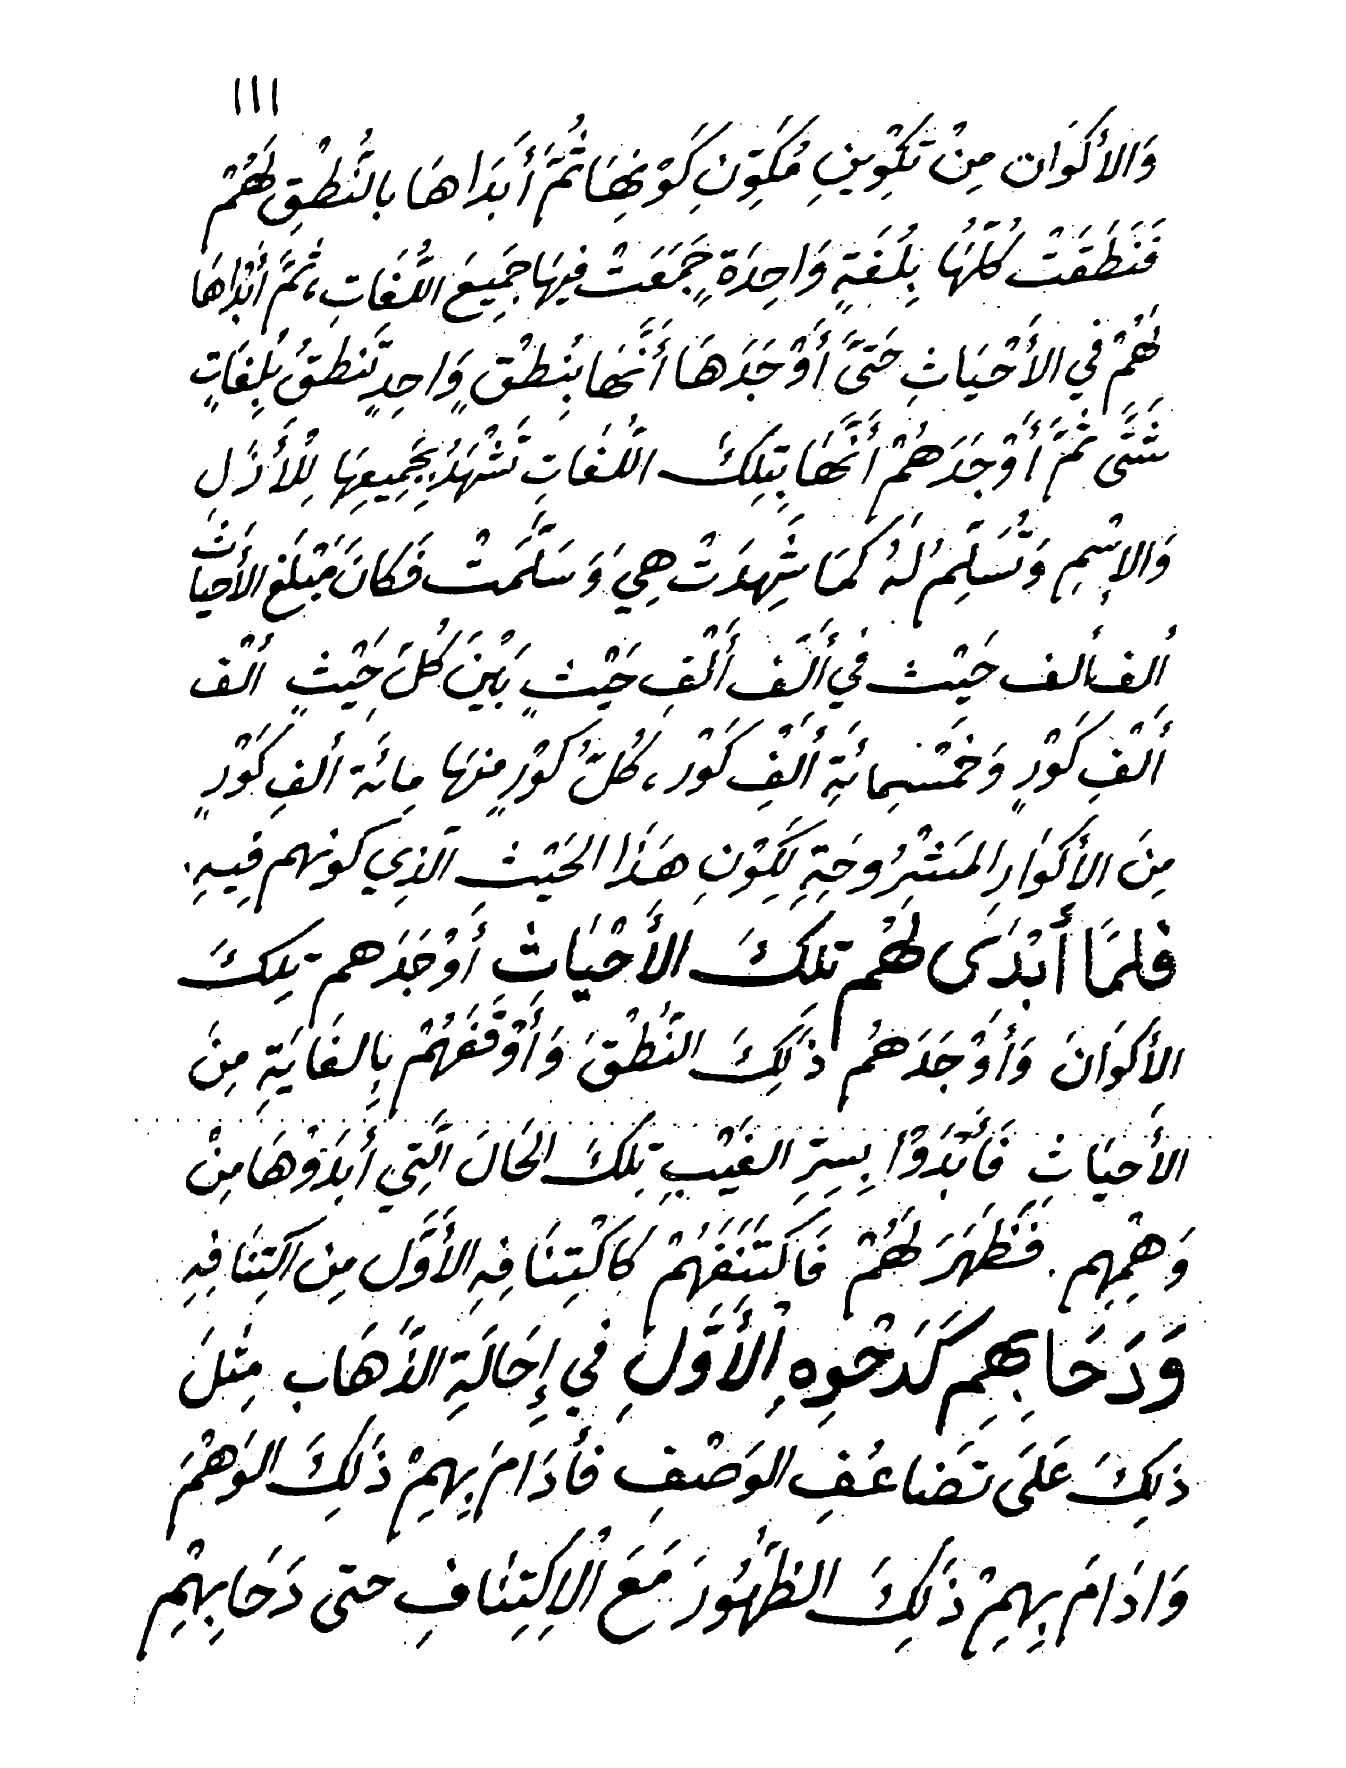 ١١١
وَالأَكْوَانِ مِنْ تَكْوِينِ مُكَوِّنِ كَوْنِهَا ثُمَّ أَبَدَاهَا بِالنُّطْقِ لَهُمْ
فَنَطَقَتْ كُلُّهَا بِلُغَةٍ وَاحِدَةٍ جَمَعَتْ فِيهَا جَمِيعَ اللُّغَاتِ، ثُمَّ أَبْدَاهَا
لَهُمْ فِي الأَحْيَاثِ حَتَّى أَوْجَدَهَا أَنَّهَا بِنُطْقٍ وَاحِدٍ تَنطِقُ بِلُغَاتٍ
شَتَّى ثُمَّ أَوْجَدَهُمْ أَنَّهَا بِتِلكَ اللُّغَاتِ تَشْهَدُ بِجَمِيعِهَا لِلأَزَلِ
وَالإِسْمِ وَتُسَلِّمُ لَهُ كَمَا شَهِدَتْ هِيَ وَسَلَّمَتْ فَكَانَ مَبْلَغُ الأَحْيَاثِ
أَلفَ أَلف حَيْث فِي أَلْف أَلْفِ حَيْثٍ بَيْنَ كُلِّ حَيْثٍ أَلْف
أَلْفِ كَوْرٍ وَخَمْسِمائَةِ أَلْفِ كَوْر، كُلُّ كَوْرٍ مِنهَا مِائَة أَلفِ كَوْرٍ
مِنَ الأَكْوَارِ المَشْرُوحَةِ لِكَوْنِ هَذَا الحَيْثِ الَّذِي كونهم فِيهِ.
فَلَمَّا أَبْدَى لَهُم تلكَ الأَحْيَاثَ أَوْجَدَهم تِلكَ
الأَكْوَانَ وَأَوْجَدَهُم ذَلِكَ النُّطْقَ وَأَوْقَفَهُمْ بِالغَايَةِ مِنَ
الأَحيَاثِ فَأَبْدَوْا بِسِرِّ الغَيْبِ تِلكَ الحَالَ الَّتِي أَبدَوْهَا مِنْ
وَهْمِهِم. فَظَهَرَ لَهُمْ فَاكتَنَفَهُمْ كَاكْتِنَافِهِ الأَوَّلِ مِن اكتِنَافِهِ
وَدَحَا بِهِم كَدَحْوِهِ الأَوَّلِ فِي إِحَالَةِ الذَّهَاب مِثلَ
ذلِكَ عَلَى تضَاعُفِ الوَصْفِ فأَدَامَ بِهِمْ ذَلِكَ الوَهْمَ
وَادَامَ بِهِمْ ذَلِكَ الظُّهُورَ مَعَ الإِكتِنَافِ حتى دَحَا بِهِمْ